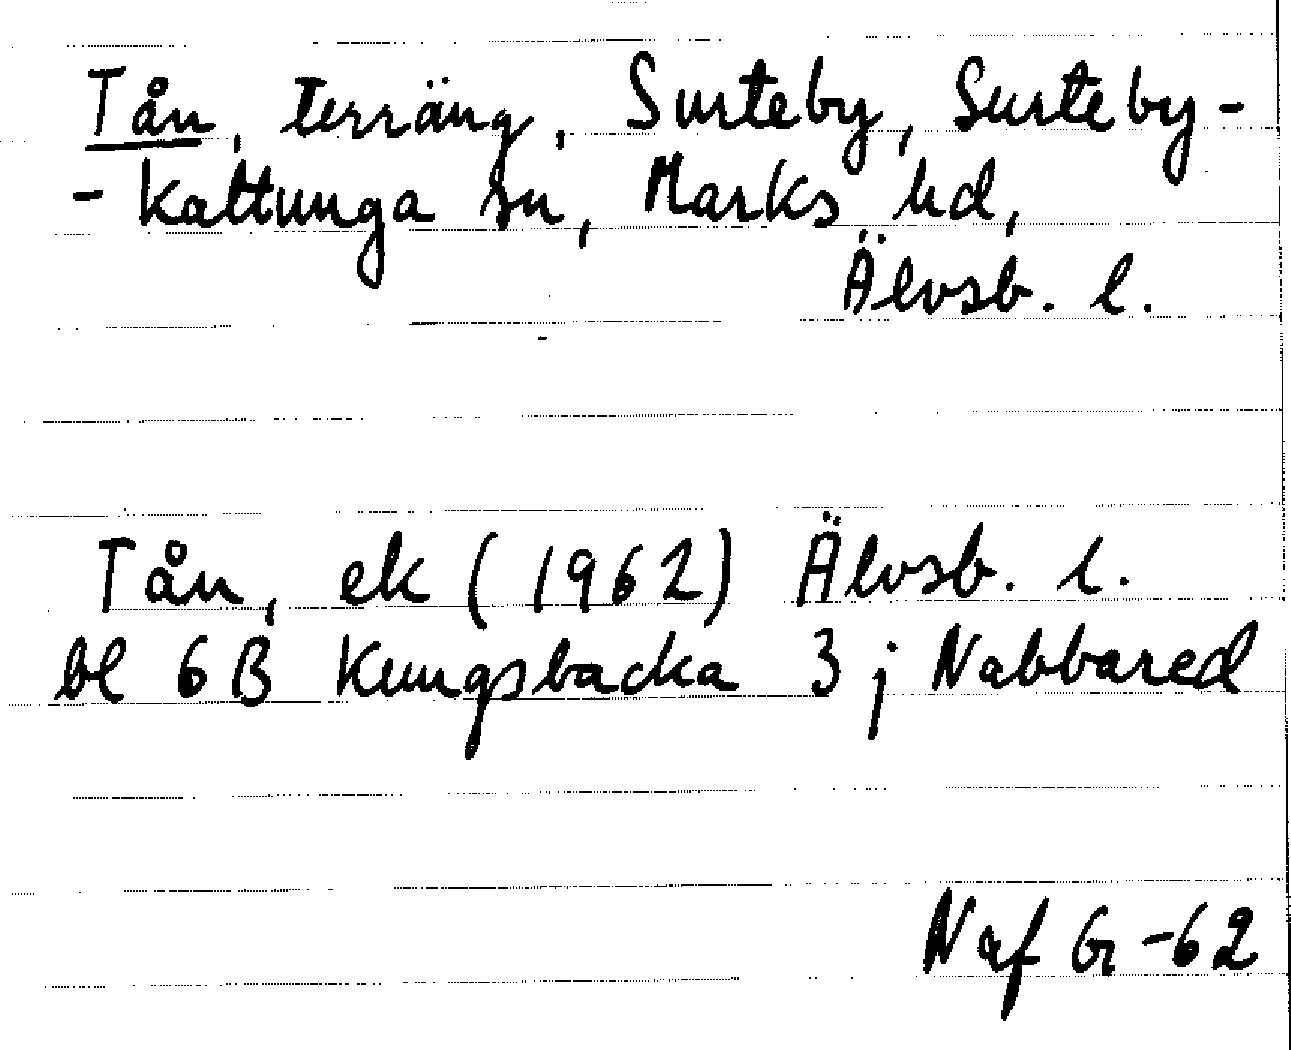 Tån, terräng, Surteby, Surteby-
- Kattunga sn, Marks hd,
Älvsb. l.
Tån, ek (1962) Älvsb. l.
bl 6 B Kungsbacka 3 j Nabbared
Naf Gr -62